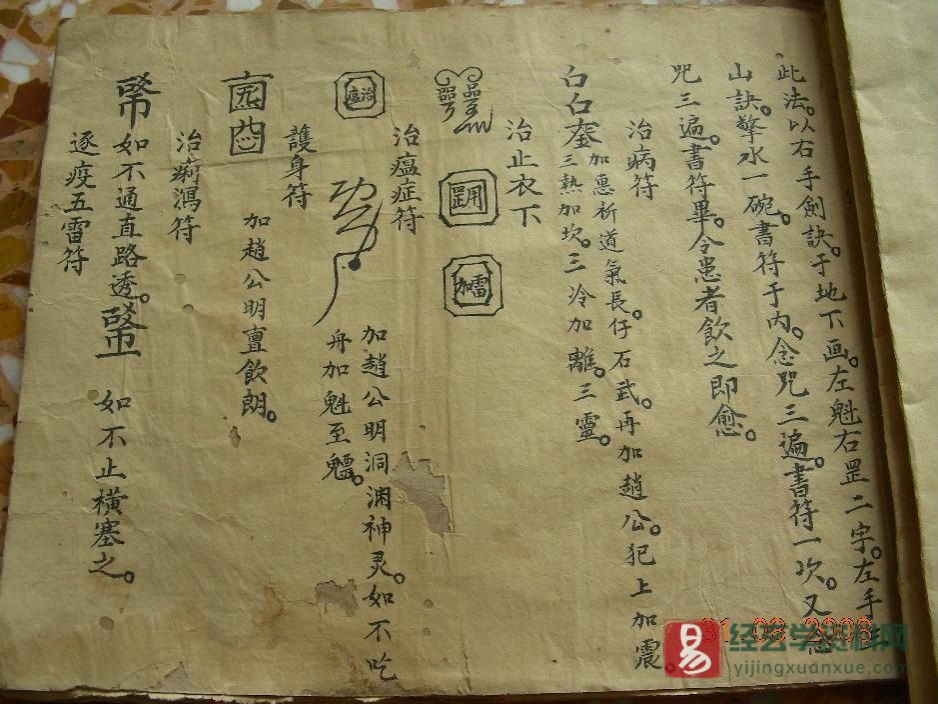 此法。以右手劍訣。于地下画。左魁右罡二字。左手
山訣。擎水一碗。書符于内。念咒三遍。書符一次。又念
咒三遍。書符畢。令患者飲之即愈。
治病符
加惠析道氣長。仔石武。再加趙公。犯上加震。
三熱加坎。三冷加離。三靈。
治止衣下
治瘟症符
治瘟
加趙公明洞渊神灵。如不吃
舟加魁至
護身符
加趙公明亶飲朗。
治瀉符
如不通直路透。
如不止横塞之。
逐疫五雷符
易
经艺学资料网
yijingxuanxue.com